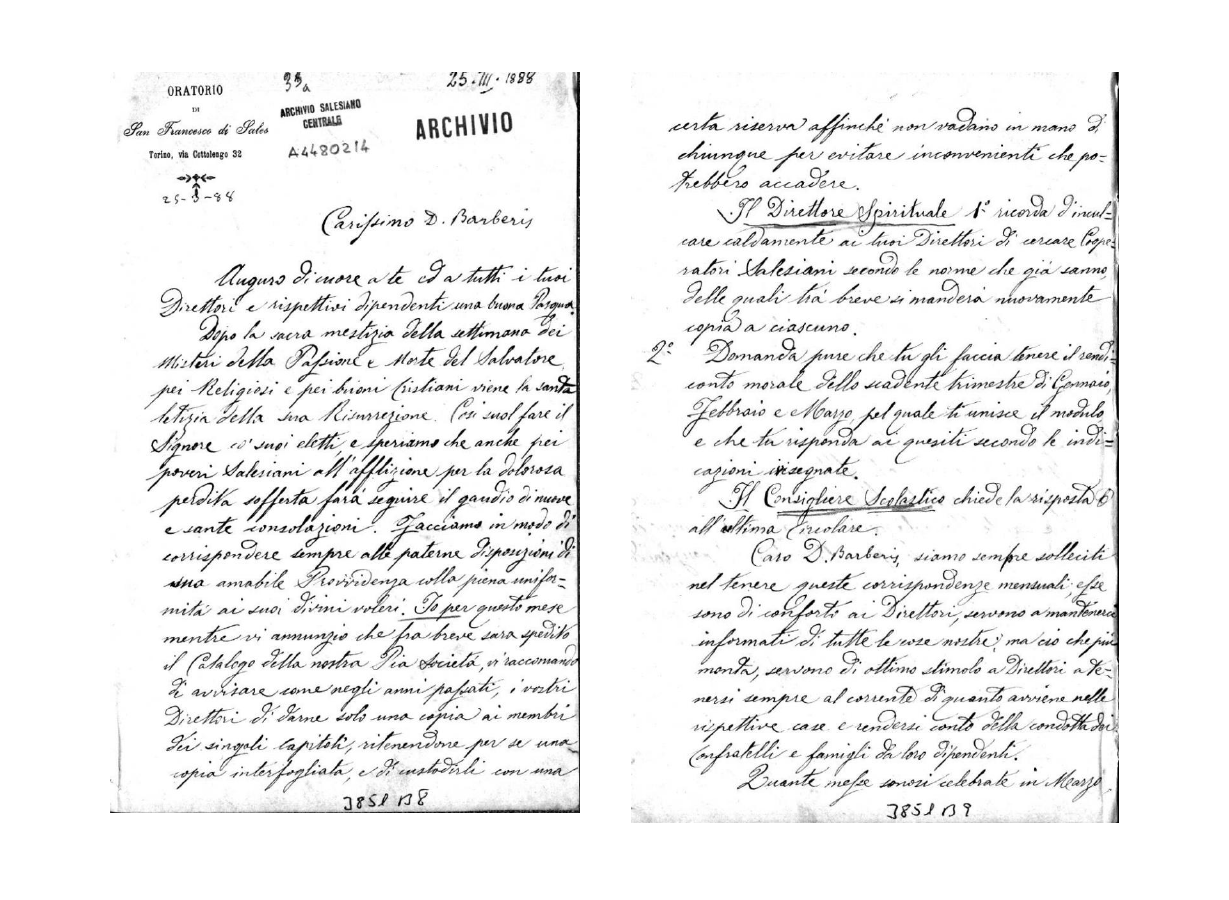 33a
25.III.1888
ORATORIO
DI
San Francesco di Sales
Torino, via Cottolengo 32
ARCHIVIO SALESIANO
CENTRALE
A4480214
ARCHIVIO
25-3-88
Carissimo D. Barberis
Auguro di cuore a te ed a tutti i tuoi
Direttori e rispettivi dipendenti una buona Pasqua.
Dopo la sacra mestizia della settimana dei
Misteri della Passione e Morte del Salvatore,
pei Religiosi e pei buoni Cristiani viene la santa
letizia della sua Risurrezione. Così suol fare il
Signore co' suoi eletti, e speriamo che anche pei
poveri Salesiani all'afflizione per la dolorosa
perdita sofferta farà seguire il gaudio di nuove
e sante consolazioni. Facciamo in modo di
corrispondere sempre alle paterne disposizioni di
sua amabile Provvidenza colla piena unifor=
mità ai suoi divini voleri. Io per questo mese
mentre vi annunzio che fra breve sarà spedito
il Catalogo della nostra Pia Società, vi raccomando
di avvisare come negli anni passati, i vostri
Direttori di darne solo una copia ai membri
dei singoli Capitoli, ritenendone per se una
copia interfogliata, e di custodirli con una
3851 B8
certa riserva affinché non vadano in mano di
chiunque per evitare inconvenienti che po=
trebbero accadere.
Il Direttore Spirituale 1° ricorda d'incul=
care caldamente ai tuoi Direttori di cercare Coope=
ratori Salesiani secondo le norme che già sanno,
delle quali trà breve si manderà nuovamente
copia a ciascuno.
2° Domanda pure che tu gli faccia tenere il rendi=
conto morale dello scadente trimestre di Gennaio,
Febbraio e Marzo, pel quale ti unisce il modulo
e che tu risponda ai quesiti secondo le indi=
cazioni ivi segnate.
Il Consigliere Scolastico chiede la risposta
all'ultima Circolare.
Caro D. Barberis, siamo sempre solleciti
nel tenere queste corrispondenze mensuali; esse
sono di conforto ai Direttori, servono a mantenerci
informati di tutte le cose nostre; ma ciò che più
monta, servono di ottimo stimolo a Direttori a te=
nersi sempre al corrente di quanto avviene nelle
rispettive case e rendersi conto della condotta dei
Confratelli e famigli da loro dipendenti.
Quante messe sonosi celebrate in Marzo,
3851 B9